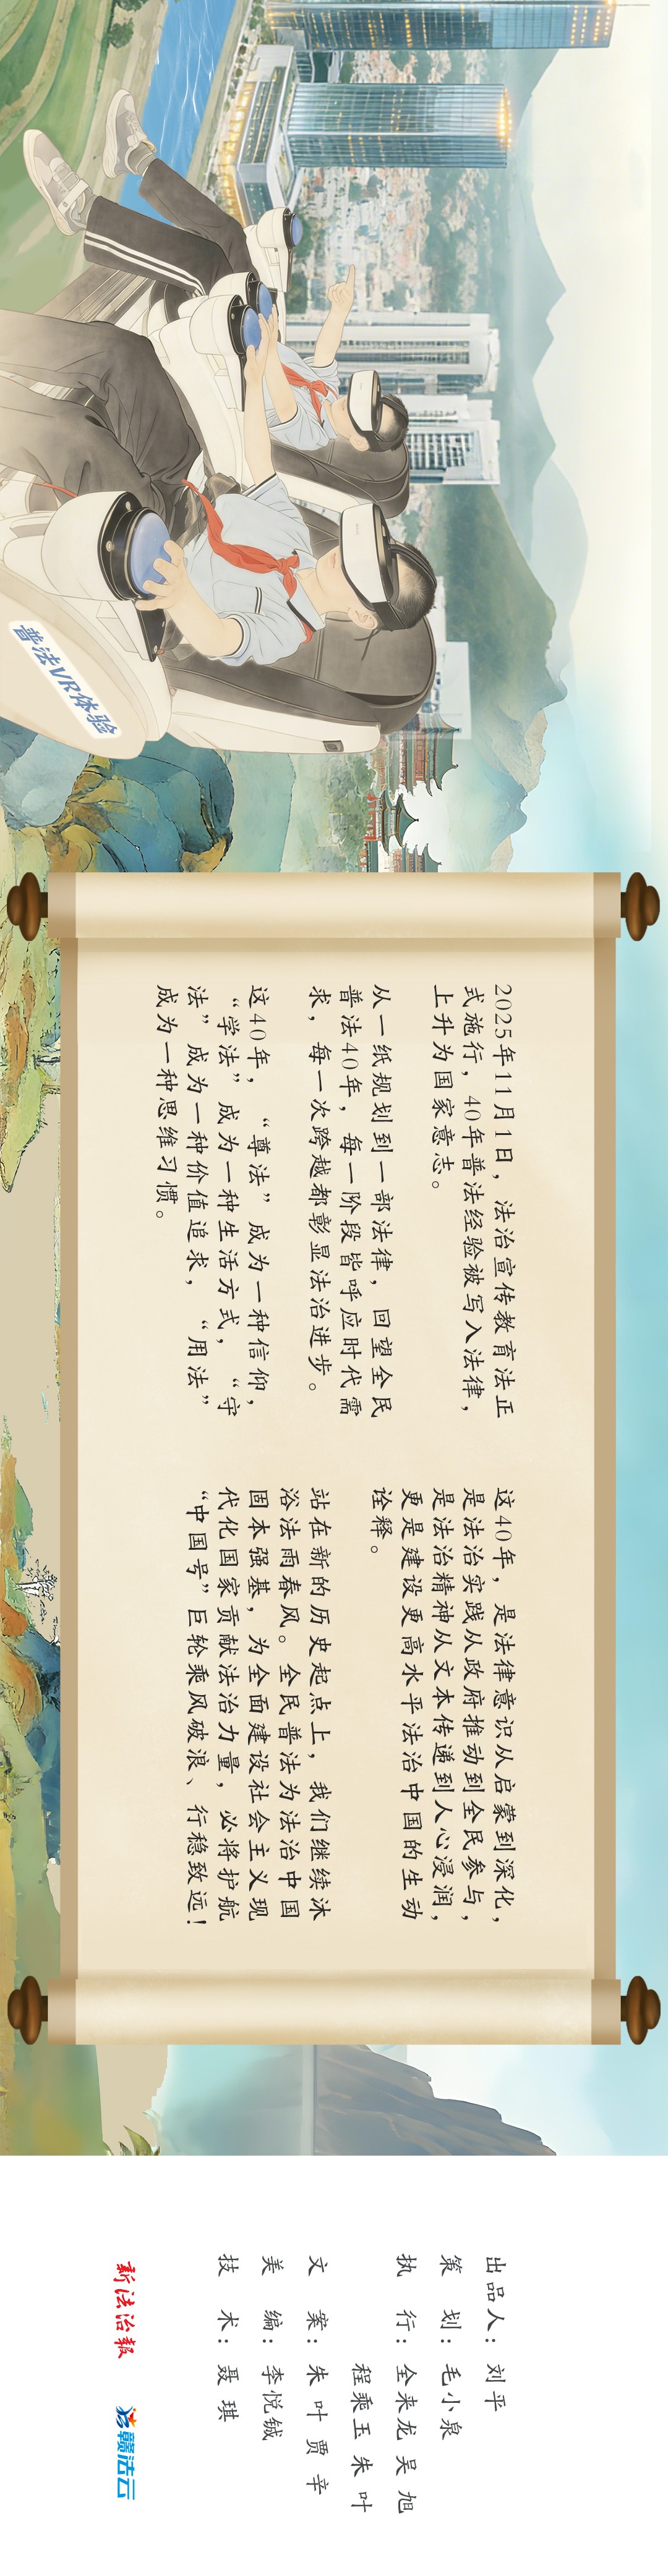 普法VR体验
2025年11月1日，法治宣传教育法正
式施行，40年普法经验被写入法律，
上升为国家意志。
从一纸规划到一部法律，回望全民
普法40年，每一阶段皆呼应时代需
求，每一次跨越都彰显法治进步。
这40年，“尊法”成为一种信仰，
“学法”成为一种生活方式，“守
法”成为一种价值追求，“用法”
成为一种思维习惯。
这40年，是法律意识从启蒙到深化，
是法治实践从政府推动到全民参与，
是法治精神从文本传递到人心浸润，
更是建设更高水平法治中国的生动
诠释。
站在新的历史起点上，我们继续沐
浴法雨春风。全民普法为法治中国
固本强基，为全面建设社会主义现
代化国家贡献法治力量，必将护航
“中国号”巨轮乘风破浪、行稳致远！
出品人：刘平
策 划：毛小泉
执 行：全来龙 吴 旭
程乘玉 朱 叶
文 案：朱 叶 贾 辛
美 编：李悦铖
技 术：聂 琪
新法治報
赣法云